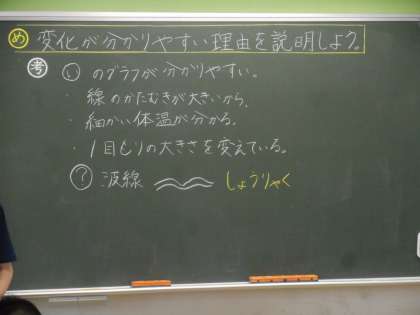 め 変化が分かりやすい理由を説明しよう。
考 いのグラフが分かりやすい。
・線のかたむきが大きいから。
・細かい体温が分かる。
・1目もりの大きさを変えている。
? 波線 しょうりゃく